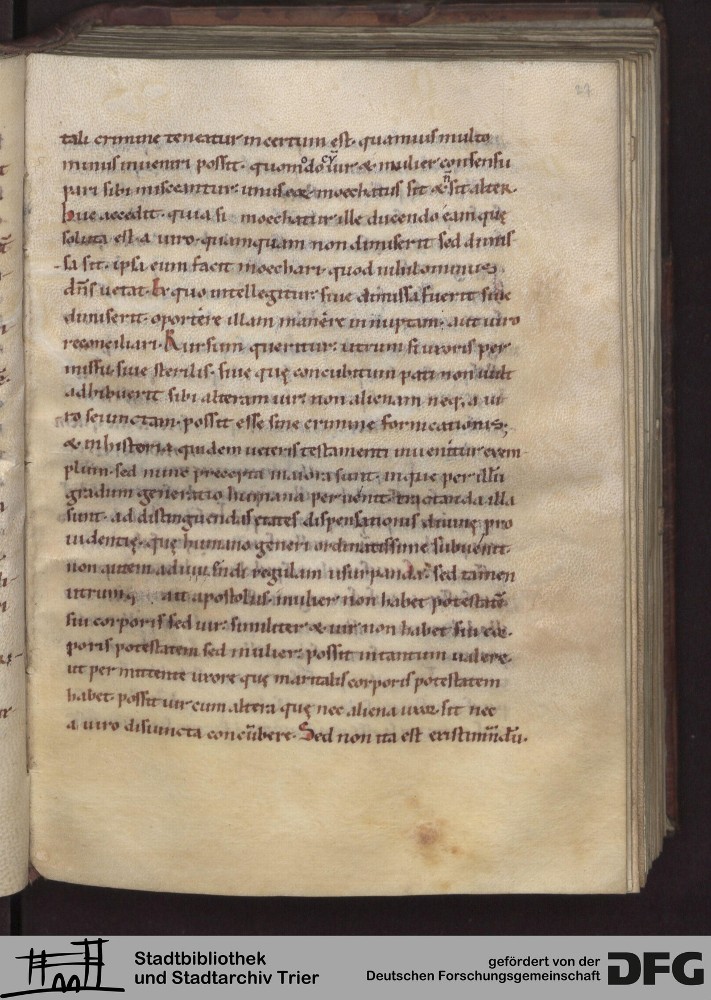 27
tali crimine teneatur incertum est· quamuis multo
minus inueniri possit· quomodo cũ uir & mulier consensu
pari sibi misceantur· unus eoꝝ moechatus sit & ñ sit alter·
Huc accedit· quia si moechatur ille ducendo eam quę
soluta est a uiro· quamquam non dimiserit sed dimis
sa sit· ipsa eum facit moechari· quod nihilominus
dn̄s uetat· Ex quo intellegitur· siue dimissa fuerit siue
dimiserit· oportere illam manere innuptam· aut uiro
reconciliari· Rursum queritur· utrum si uxoris per
missu· siue sterilis· siue quę concubitum pati non uult
adhibuerit sibi alteram uir· non alienam neq; a ui
ro seiunctam· possit esse sine crimine fornicationis;
& in historia quidem ueteris testamenti inuenitur exem
plum· sed nunc precepta maiora sunt· in que per illū
gradum generatio humana peruenit· tractanda illa
sunt· ad distinguendas etates dispensationis diuinę pro
uidentię· quę humano generi ordinatissime subuenit·
non autem ad uiuendi regulam usurpanda· sed tamen
utrum ait apostolus· mulier non habet potestatē
sui corporis sed uir· similiter & uir non habet sui cor
poris potestatem sed mulier· possit in tantum ualere·
ut permittente uxore quę maritalis corporis potestatem
habet· possit uir cum altera quę nec aliena uxor sit nec
a uiro disiuncta concūbere· Sed non ita est existimandū·
Stadtbibliothek
und Stadtarchiv Trier
gefördert von der
Deutschen Forschungsgemeinschaft
DFG